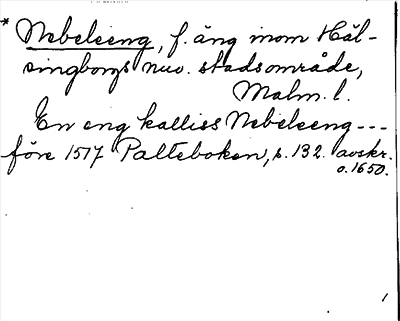 * Nebeleeng, f. äng inom Häl-
singborgs nuv. stadsområde,
Malm. l.
En eng kalliss Nebeleeng ---
före 1517 Palteboken, s. 132. avskr.
o. 1650.
1